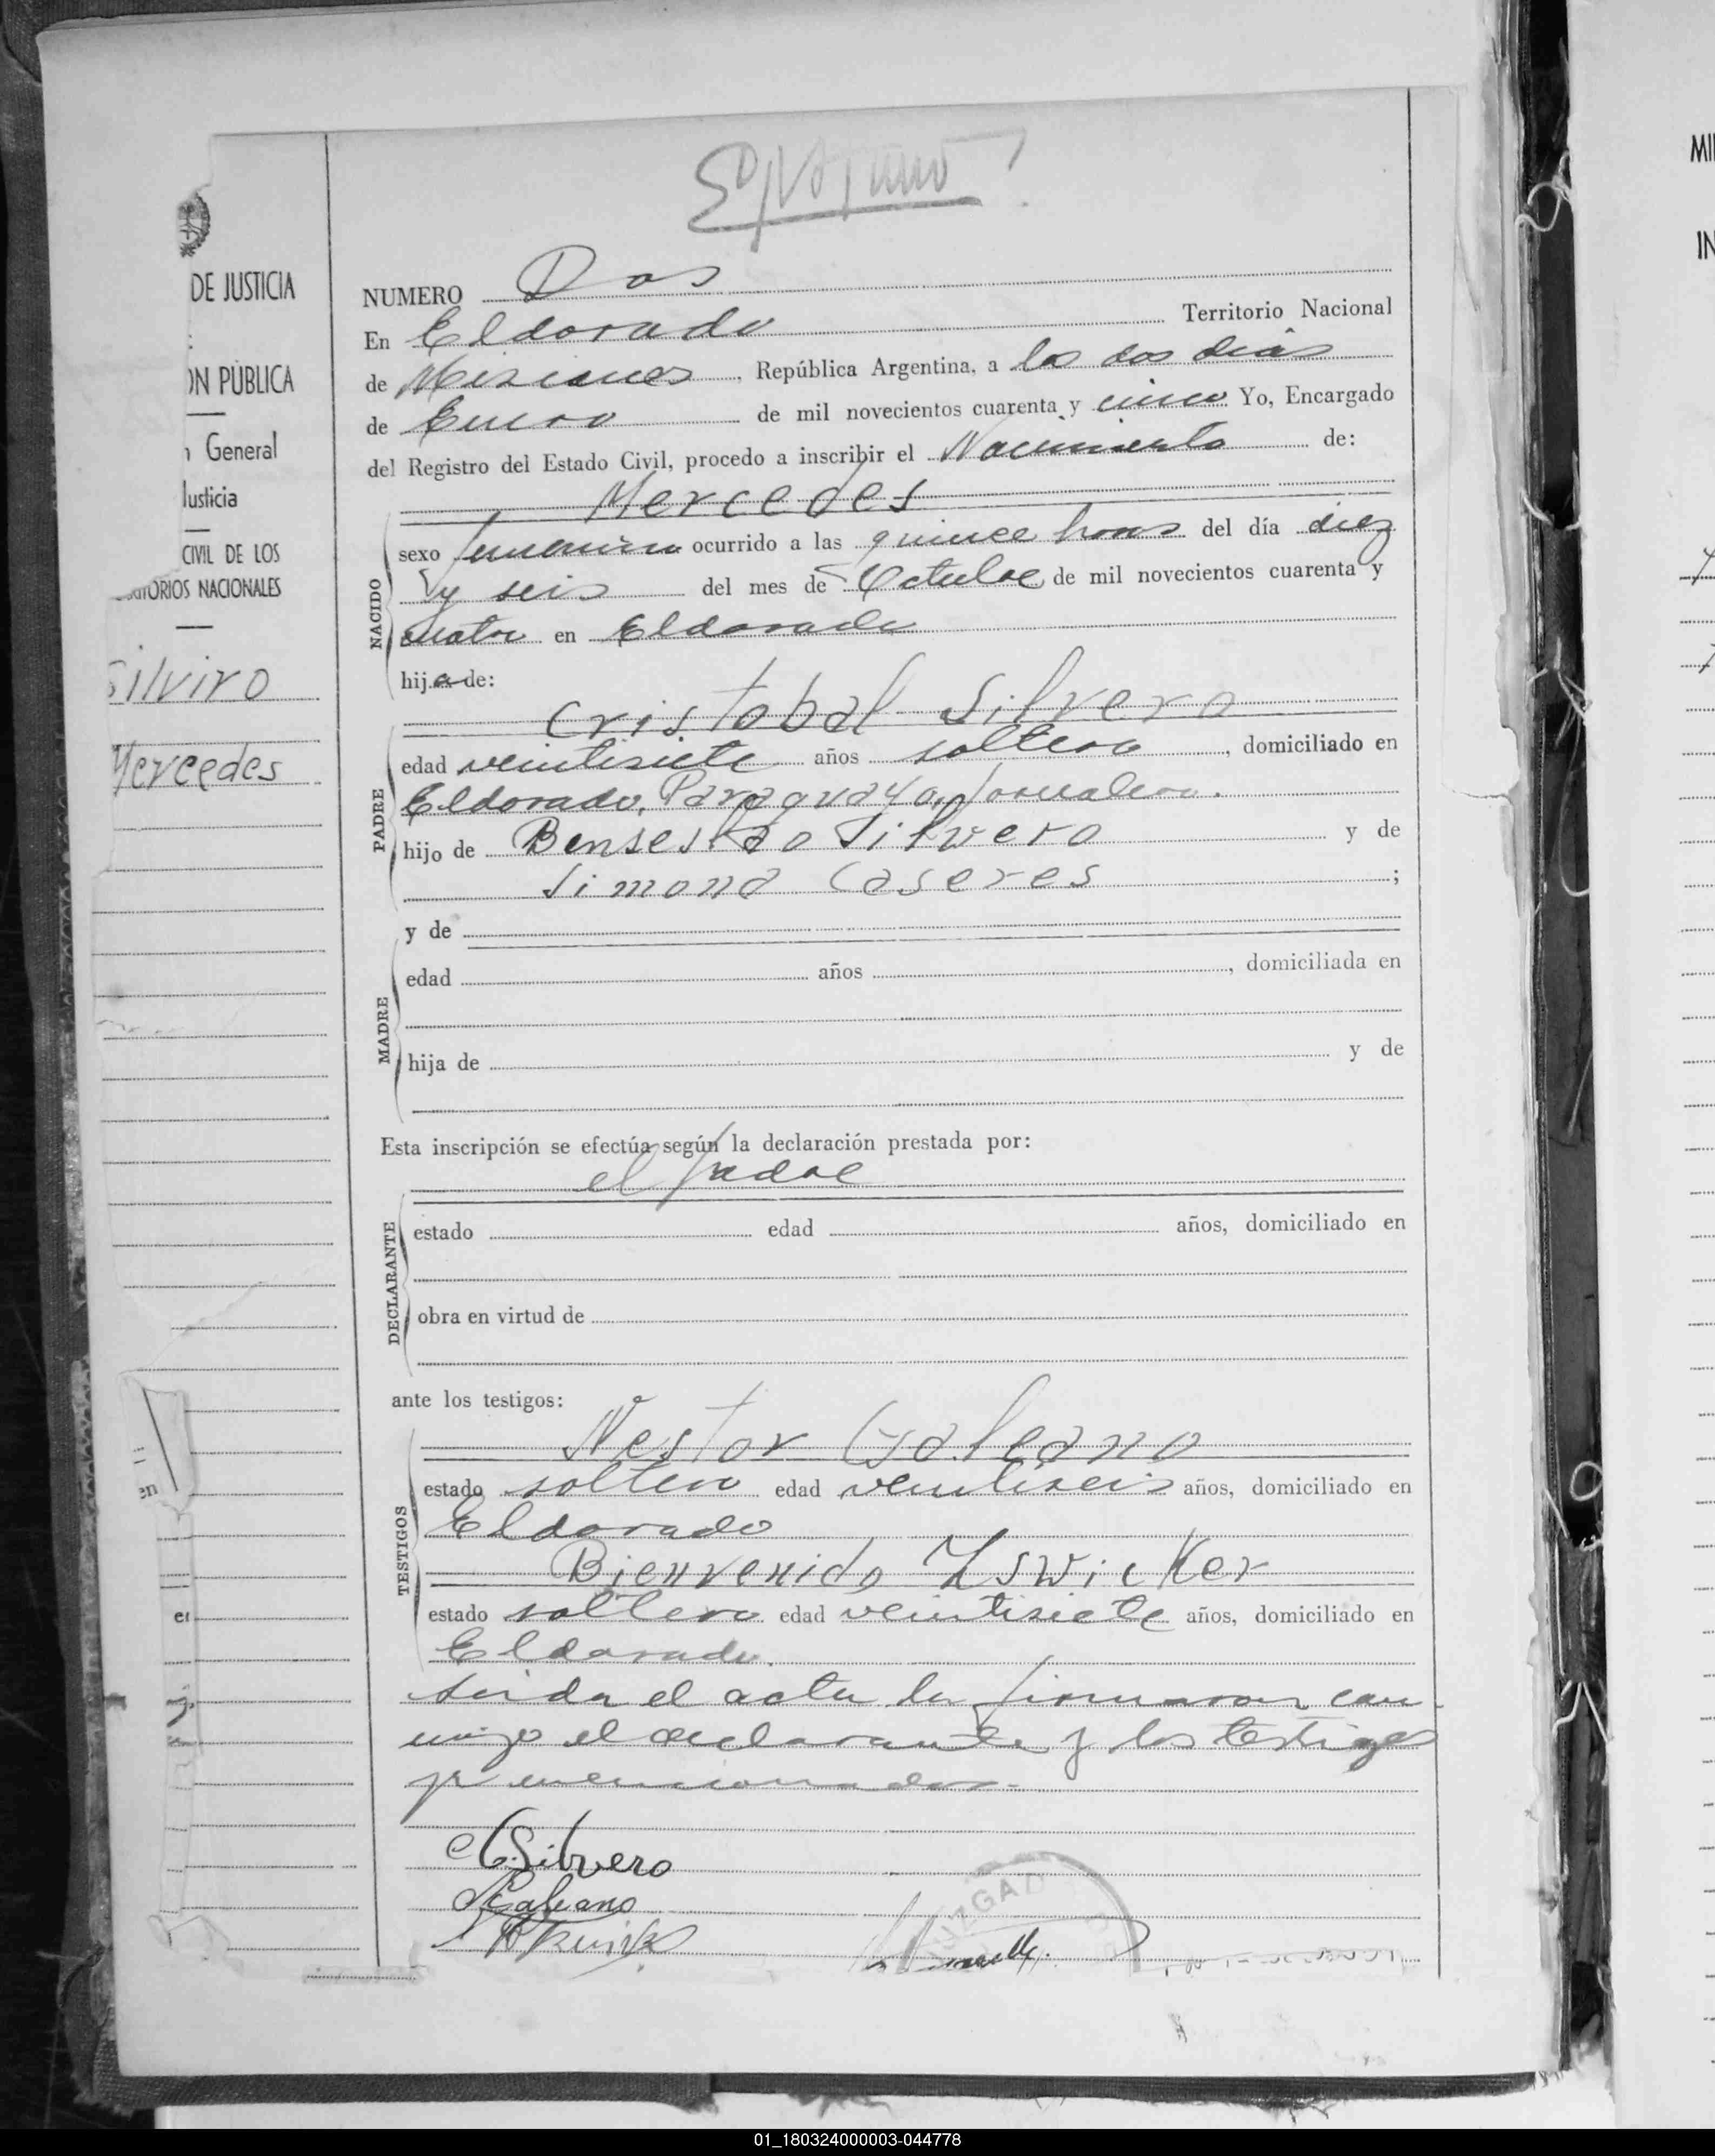 NUMERO Dos
En Eldorado Territorio Nacional
de Misiones, República Argentina, a los dos días
de Enero de mil novecientos cuarenta y cinco Yo, Encargado
del Registro del Estado Civil, procedo a inscribir el Nacimiento de:
Mercedes
NACIDO
sexo femenino ocurrido a las quince horas del día diez
y seis del mes de Octubre de mil novecientos cuarenta y
cuatro en Eldorado
hija de:
Cristobal Silvero
PADRE
edad veintisiete años soltero, domiciliado en
Eldorado, Paraguayo, Jornalero.
hijo de Silvero y de
Simona Caseres;
y de
MADRE
edad años, domiciliada en
hija de y de
Esta inscripción se efectúa según la declaración prestada por:
el padre
DECLARANTE
estado edad años, domiciliado en
obra en virtud de
ante los testigos:
TESTIGOS
Nestor Galeano
estado soltero edad veintiseis años, domiciliado en
Eldorado
Bienvenido Zswicker
estado soltero edad veintisiete años, domiciliado en
Eldorado.
Leida el acta la firmaron con-
migo el declarante y los testigos
pre mencionados.-
C. Silvero
Galeano
JUZGAD
DE JUSTICIA
ON PÚBLICA
n General
Justicia
CIVIL DE LOS
TORIOS NACIONALES
Silviro
Mercedes
en
er
MI
IN
01_180324000003-044778